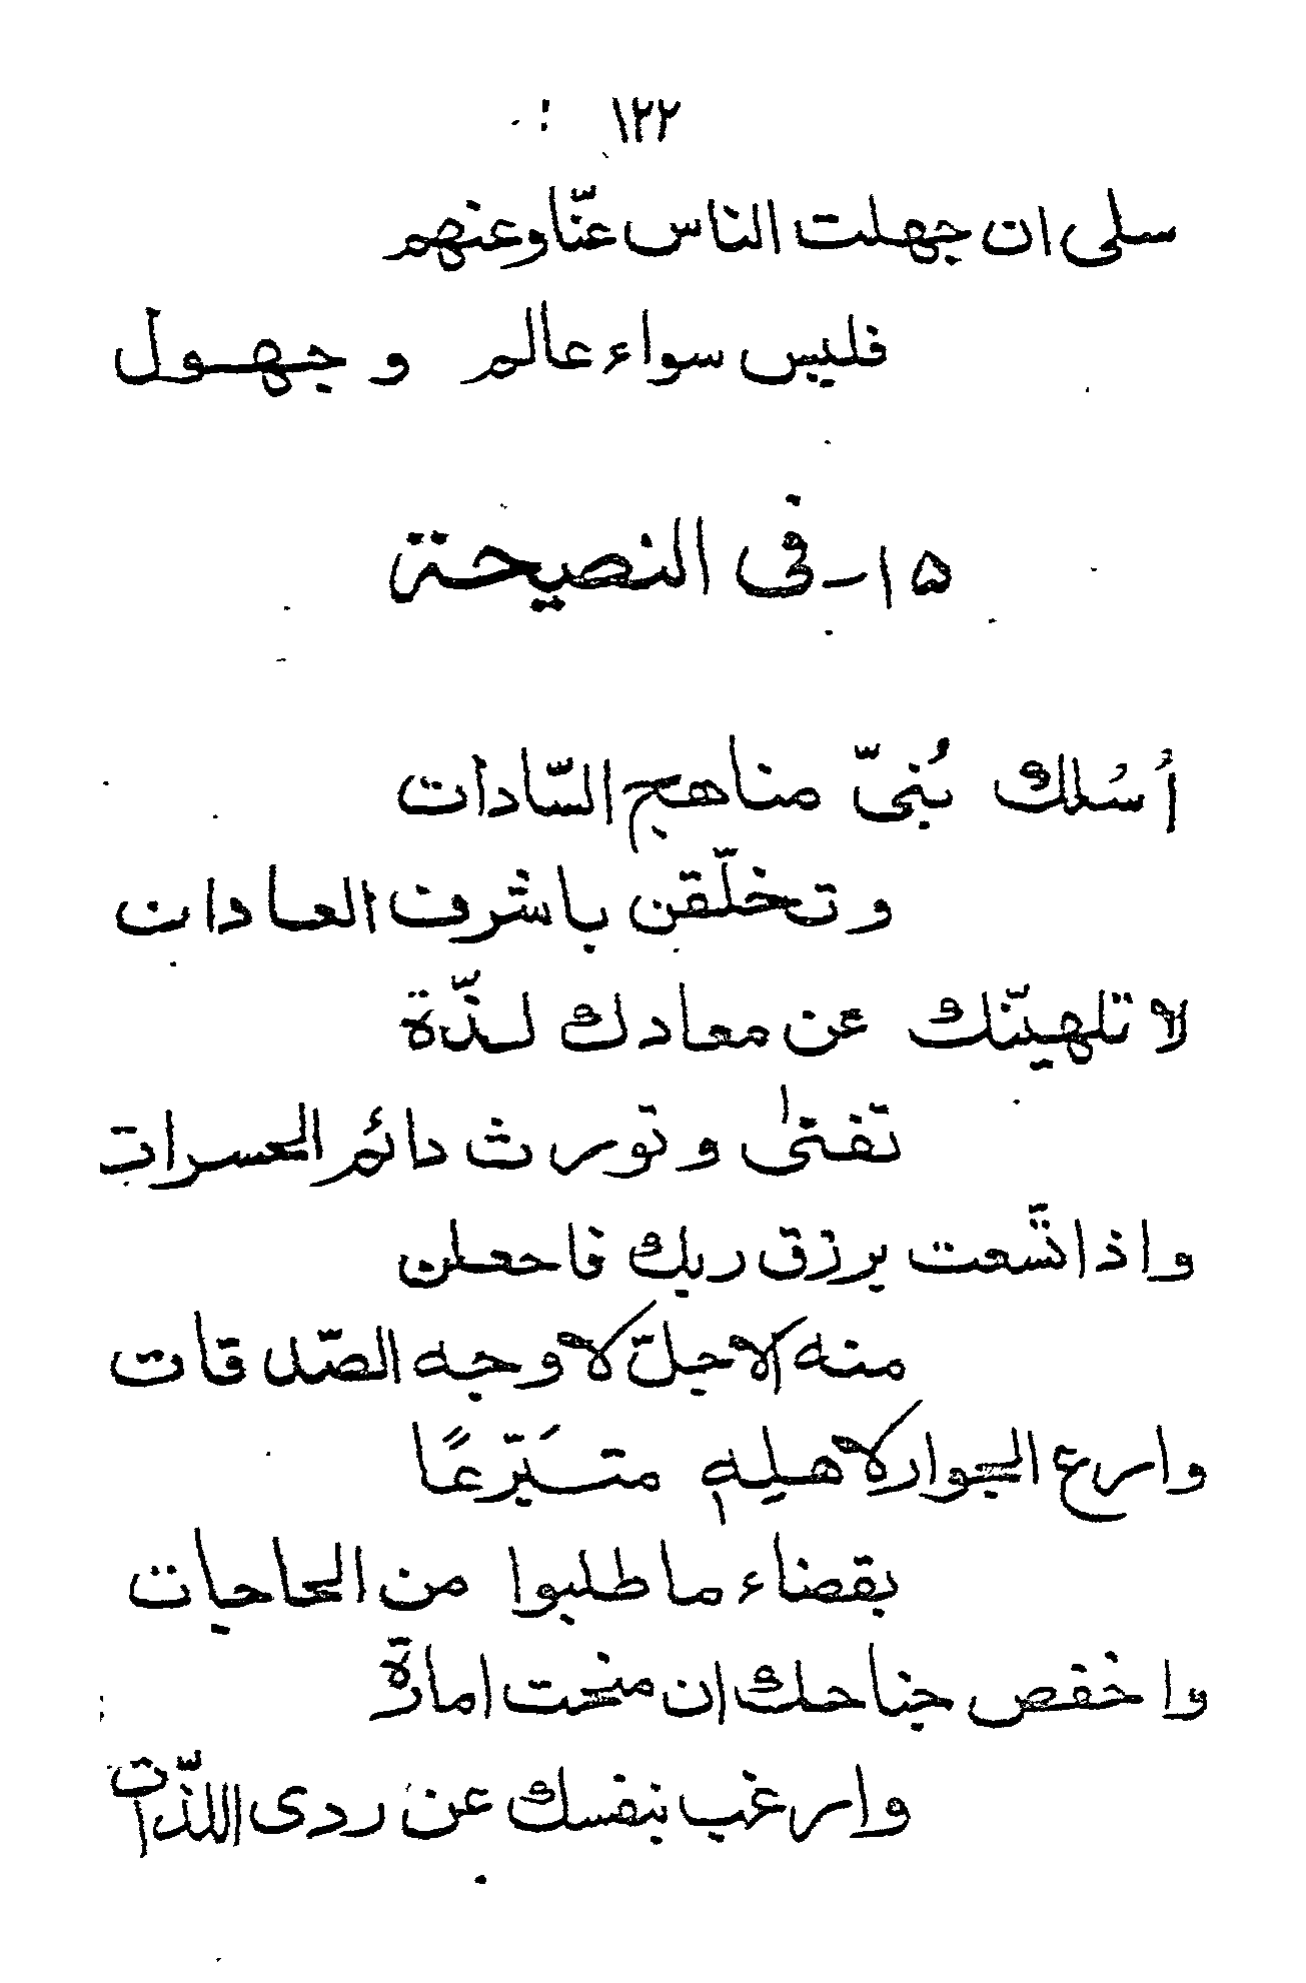 ١٢٢
سلى ان جهلت الناس عنّا وعنهم
فليس سواء عالم و جهول
١٥ - فى النصيحة
أسُلك بُنىّ مناهج السّادات
و تخلّقن باشرف العادات
لا تلهينّك عن معادك لذّة
تفنىٰ و تورث دائم الحسرات
واذا اتّسعت برزق ربك فاجعلن
منه الاجلّ لاوجه الصّدقات
وارع الجوار لاهلِه متَبرّعًا
بقضاء ما طلبوا من الحاجات
واخفص جناحك ان منحت امارة
وارغب بنفسك عن ردى اللذّات